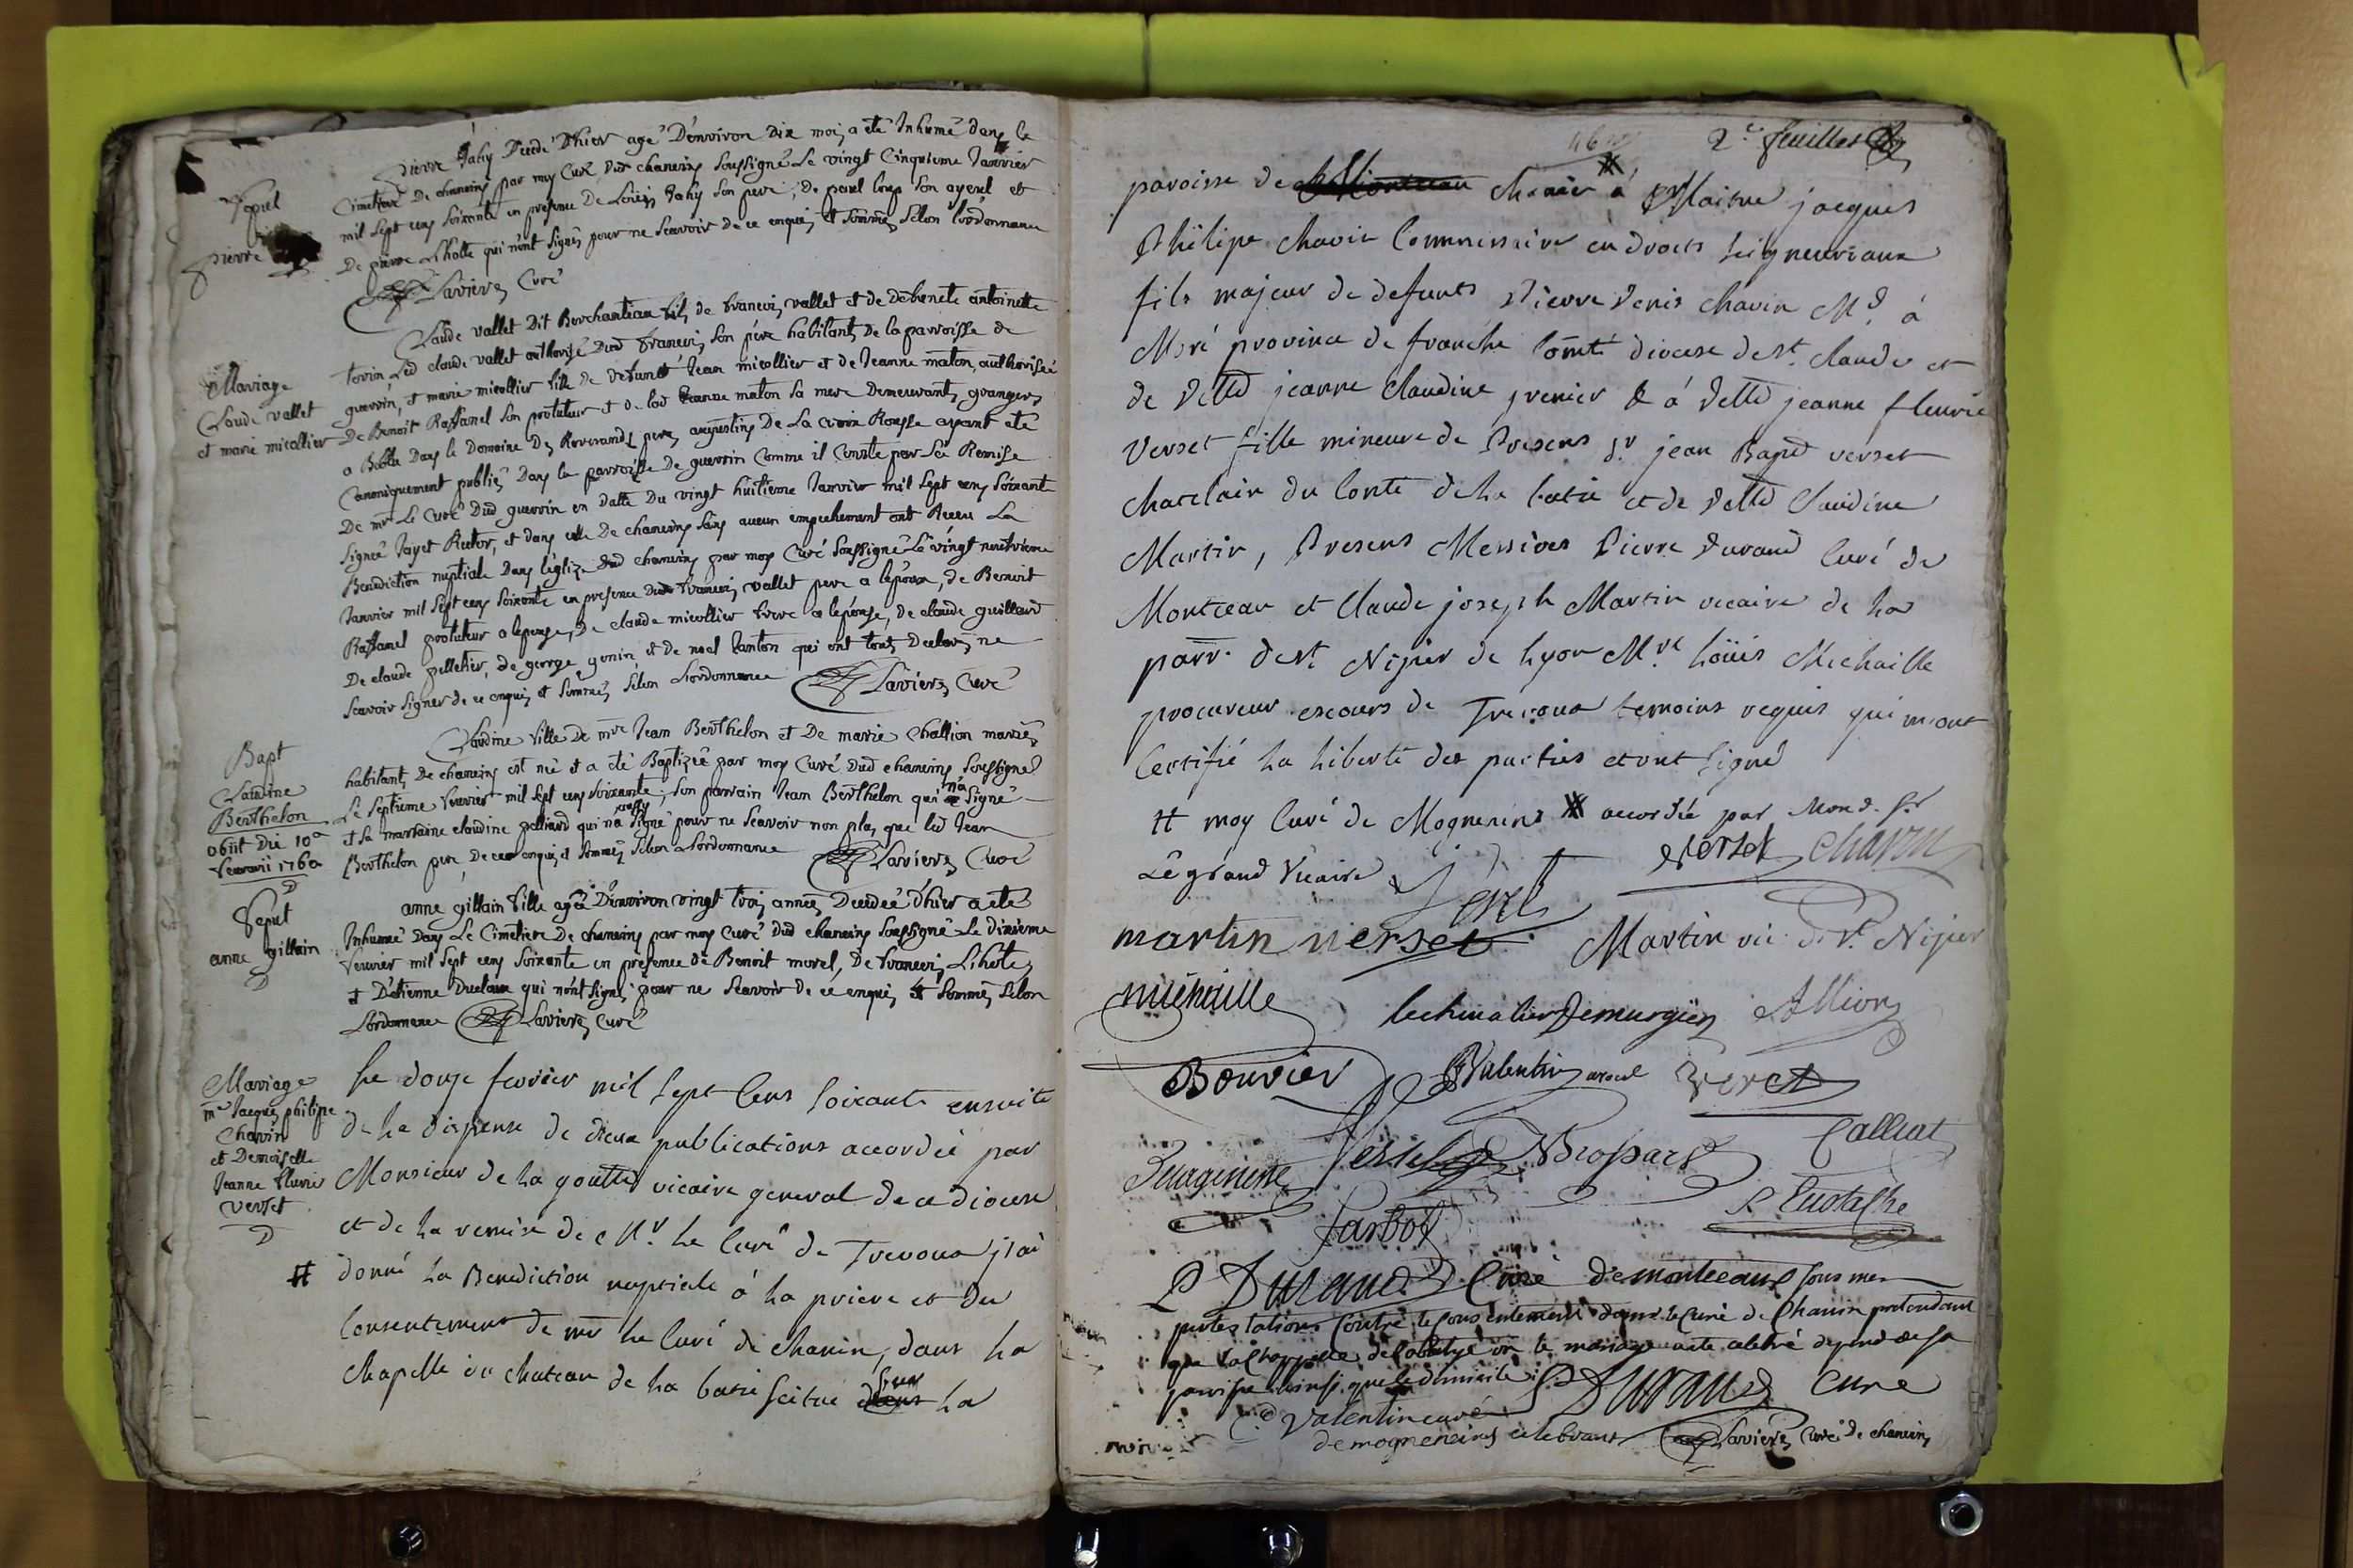 Sepul
pierre
pierre Jahy Decedé D'hier agé D'environ Dix mois a été Inhumé dans le
Cimetiere De chaneins par moy Curé Dud chaneins soussigné Le vingt Cinquieme Janvier
mil sept cens soixante en présence De Loüis Jahy son pere, De
De pierre Lhotte qui n'ont signés pour ne scavoir de ce enquis et sommés selon l'ordonnance
Laviere Curé
Mariage
Claude vallet
et marie micollier
Claude vallet Dit Berchanteau fils de francois vallet et de défuncte antoinette
tovin, Led claude vallet authorisé Dud francois son père habitants De la parroisse de
guerrin, et marie micollier fille de Defunct Jean micollier et de Jeanne maton, authorisée
De Benoit Raffanel son protuteur et de lad Jeanne maton sa mere Demeurants grangers
a Balla Dans le Domaine Des Reverands peres augustins De La croix Rousse ayant été
Canoniquement publiés Dans la parroisse De guerrin Comme il Conste par la Remise
De mr Le Curé Dud guerrin en Datte Du vingt huitieme Janvier mil sept cens soixante
signée Jayet Rector, et dans celle De chaneins sans aucun empechement ont Receu La
Benediction nuptiale Dans l'églize dud chaneins par moy Curé soussigné Le vingt neuvieme
Janvier mil sept cens soixante en présence Dud francois vallet pere a l'époux, de Benoit
Raffanel protuteur a lepouse, De claude micollier frere a lepouse, de claude guillard
De claude pelletier, de george genin, et de noel Janton qui ont tous Declarés ne
scavoir signer de ce enquis et sommés selon L'ordonnance Laviere Curé
Bapt
Claudine
Berthelon
obiit Die 10a
fevruarii 1760
Claudine fille De mre Jean Berthelon et De marie Challion mariés
habitants De chaneins est née et a été Baptizée par moy Curé Dud chaneins soussigné
Le septieme fevrier mil sept cens soixante; son parrain Jean Berthelon qui n'a signé
et sa marraine claudine pelliard qui n'a aussy signé pour ne scavoir non plus que led Jean
Berthelon pere, De ce enquis et sommés selon L'ordonnance Laviere Curé
Sepult
anne gillain
anne gillain fille agée D'environ vingt trois années Decedée D'hier a été
Inhumé Dans Le Cimetiere De chaneins par moy Curé Dud chaneins soussigné Le dixieme
fevrier mil sept cens soixante en présence de Benoit morel, De francois Lihote
et D'étienne Duclaux qui n'ont signés pour ne scavoir De ce enquis et sommés selon
L'ordonnance Laviere Curé
Mariage
mre Jacques philipe
Chavin
et Demoiselle
Jeanne fleurie
verset
Le douze fevrier mil sept Cens soixante ensuite
de la dispense de deux publications accordée par
Monsieur de la goutte vicaire general de ce diocese
et de la remise de Mr. Le Curé de Trevoux j'ai
# donné la Benediction nuptiale á la priere et du
Consentement de mr le Curé de Chanin, dans la
Chapelle du chateau de la batie scitué sur la
2e feuillet
paroisse de Chanin á Maitre jacques
Philipe Chavin Commissaire en droits seigneuriaux
fils majeur de defunts Pierre Denis Chavin Md. á
Moré province de franche Comté diocese de st. claude et
de Delle jeanne Claudine grenier & á Delle jeanne fleurie
Verset fille mineure de Presens Sr. jean Bapt verset
Chatelain du Comté de la batie et de Delle Claudine
Martin, Presens Messires Pierre Durand Curé de
Montceau et Claude joseph Martin vicaire de la
parr. de st. Nizier de Lyon Mre Loüis Michaille
procureur es cours de Trevoux temoins requis qui m'ont
Certifié la liberté des parties et ont signé
# moy Curé de Mognenins # accordée par Mond. Sr
Le grand Vicaire
verset Chavin
martin verset Martin vic. de St. Nizier
michaille le chevalier Demurgies Allion
Bouvier Valentin verset
Calliat
Brossard
Jarbot
Eustache
P Durand Curé de monteaux sous mes
protestations Contre le Consentement donné le Curé de Chanin pretendant
que la Chappelle de labatye où le mariage a été celebré depend de sa
paroisse ainsi que le domicile Durand Curé
Valentin curé
de mogneneins celebrant Laviere Curé de chaneins